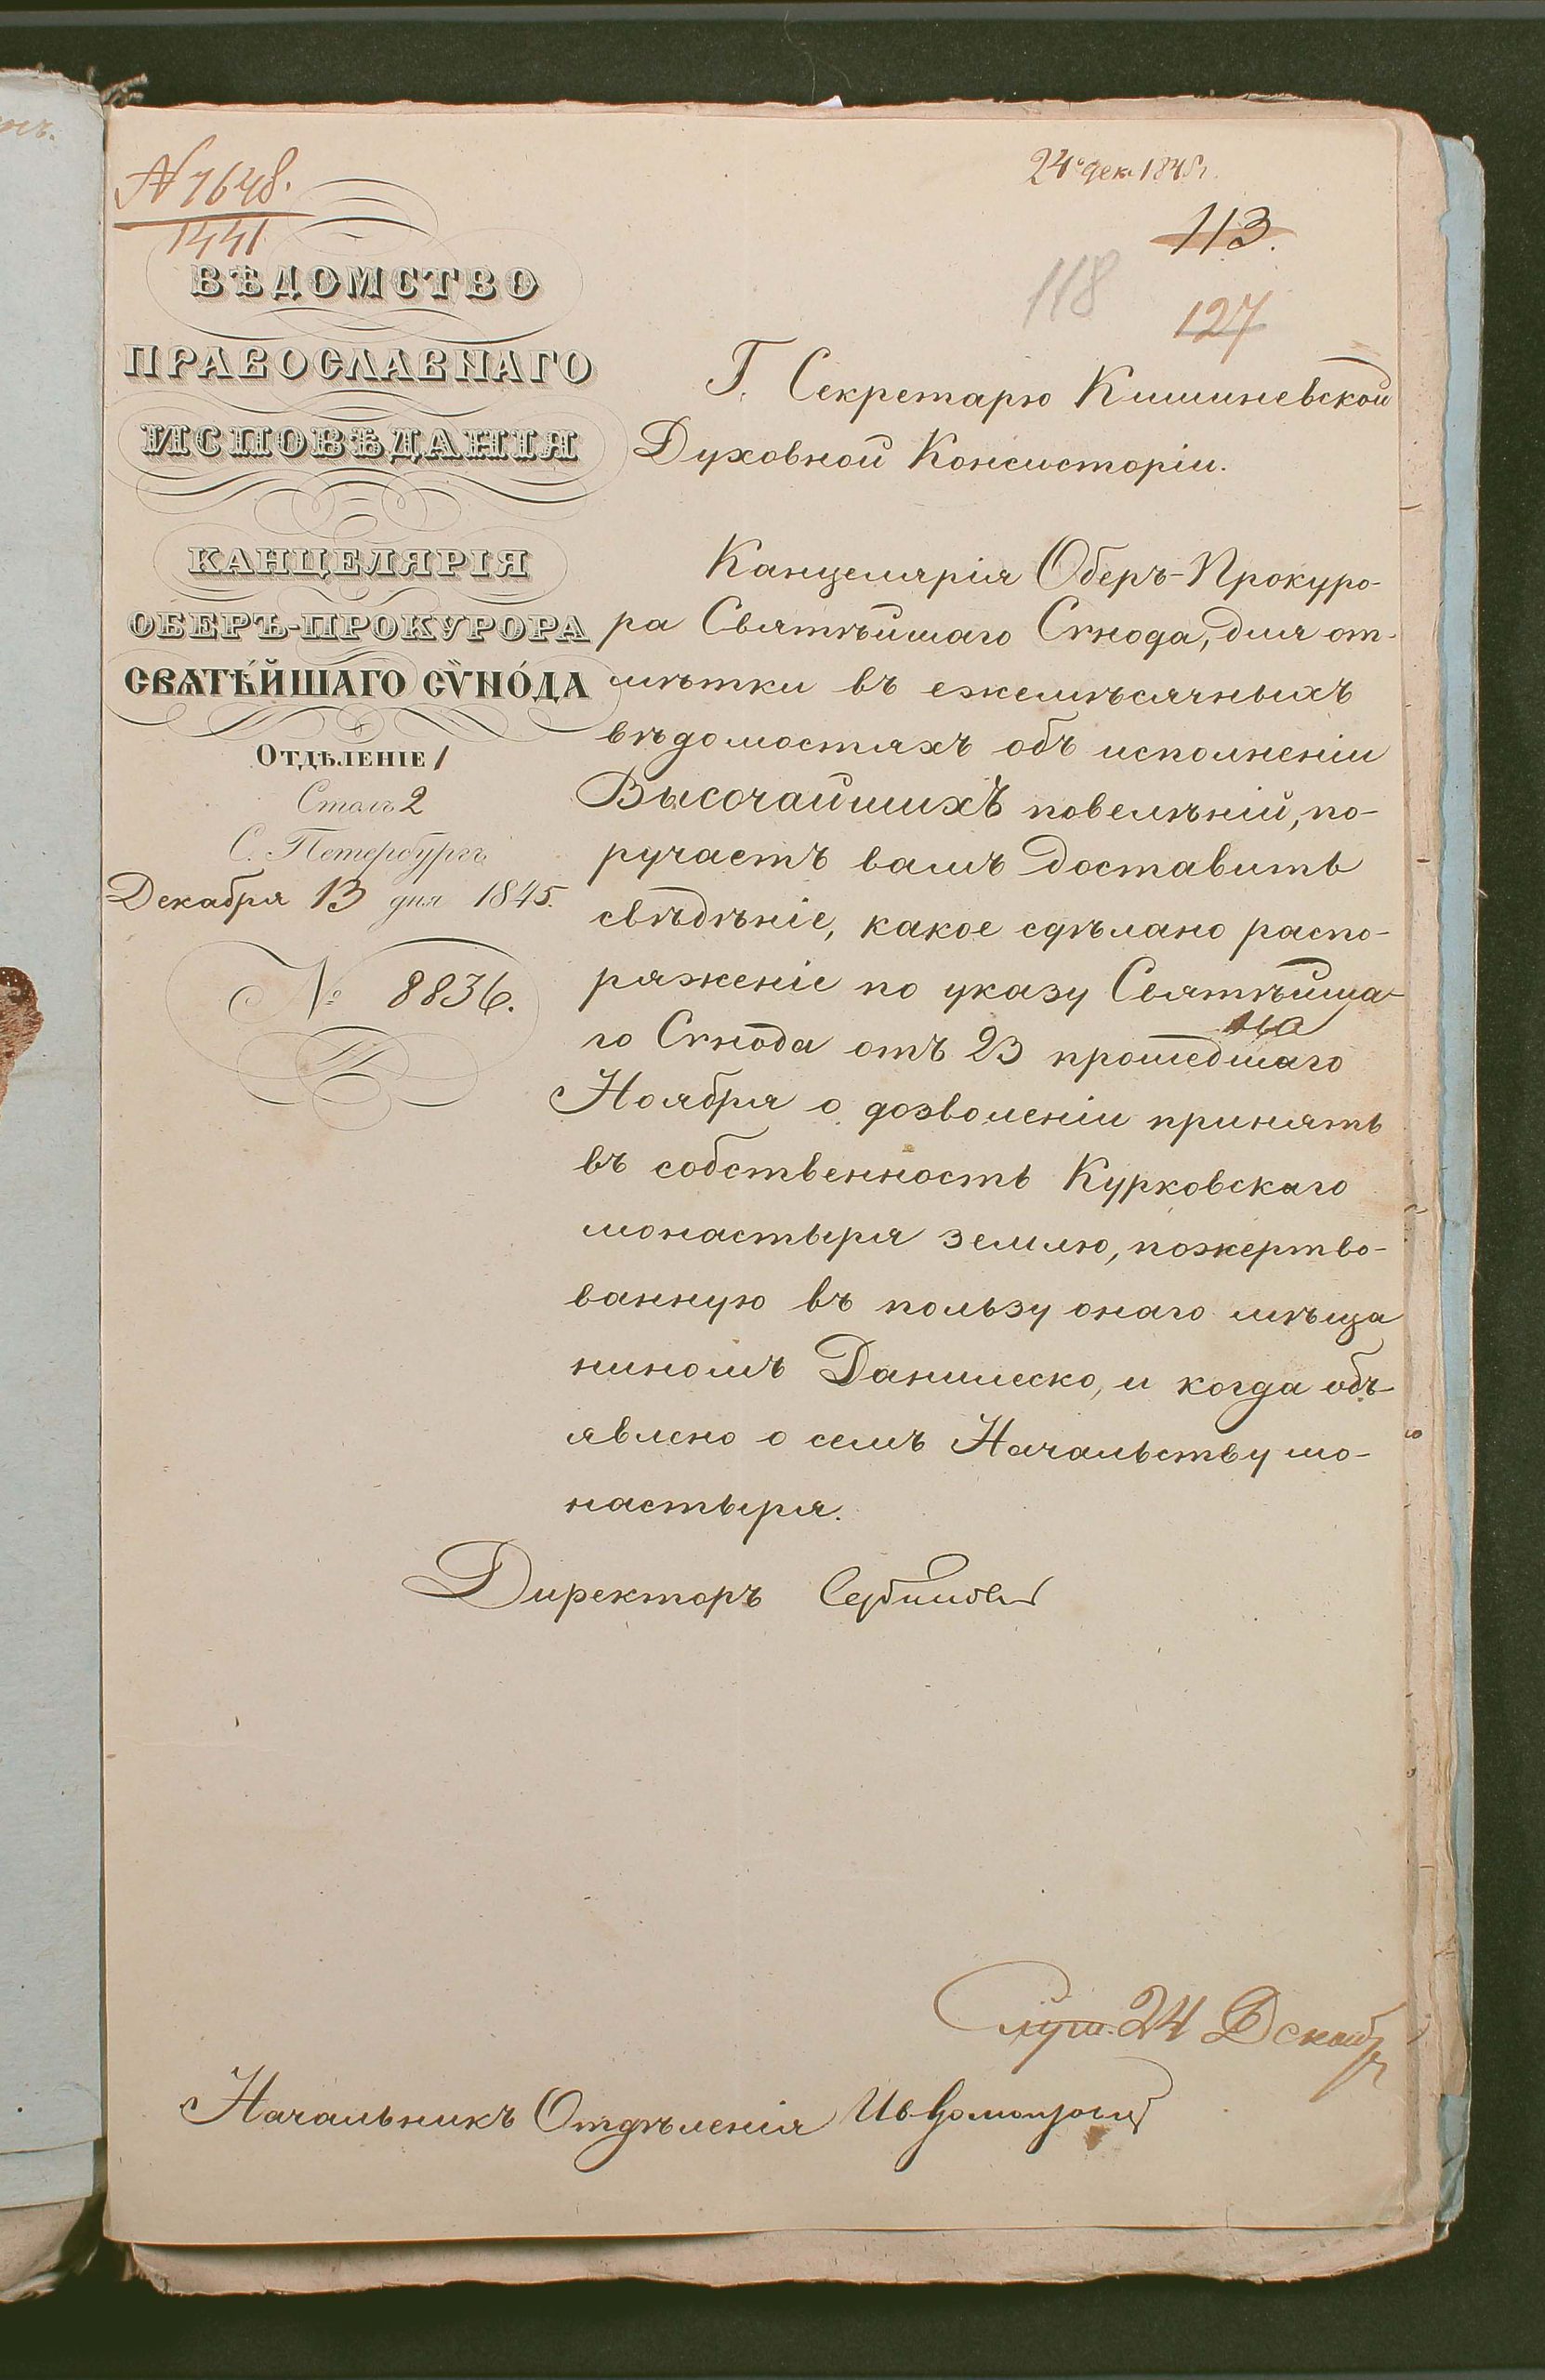 № 7648.
1441
24 дек. 1845 г.
113.
118
127
ВѢДОМСТВО
ПРАВОСЛАВНАГО
ИСПОВѢДАНІЯ
КАНЦЕЛЯРІЯ
ОБЕРЪ-ПРОКУРОРА
СВѦТѢ́ЙШАГО СѴНО́ДА
ОТДѢЛЕНІЕ 1
Столъ 2
С. Петербургъ
Декабря 13 дня 1845.
№ 8836.
Г. Секретарю Кишиневской
Духовной Консисторіи.
Канцелярія Оберъ-Прокуро-
ра Святѣйшаго Сѵнода, для от-
мѣтки въ ежемѣсячныхъ
вѣдомостяхъ объ исполненіи
Высочайшихъ повелѣній, по-
ручаетъ вамъ доставить
свѣдѣніе, какое сдѣлано распо-
ряженіе по указу Святѣйша-
го Сѵнода отъ 23 прошедшаго
Ноября о дозволеніи принять
въ собственность Курковскаго
монастыря землю, пожертво-
ванную въ пользу онаго мѣща
ниномъ Данилеско, и когда объ-
явлено о семъ Начальству мо-
настыря.
Директоръ Сербиновичъ
Слуш. 24 Декабр
Начальникъ Отдѣленія Ив.